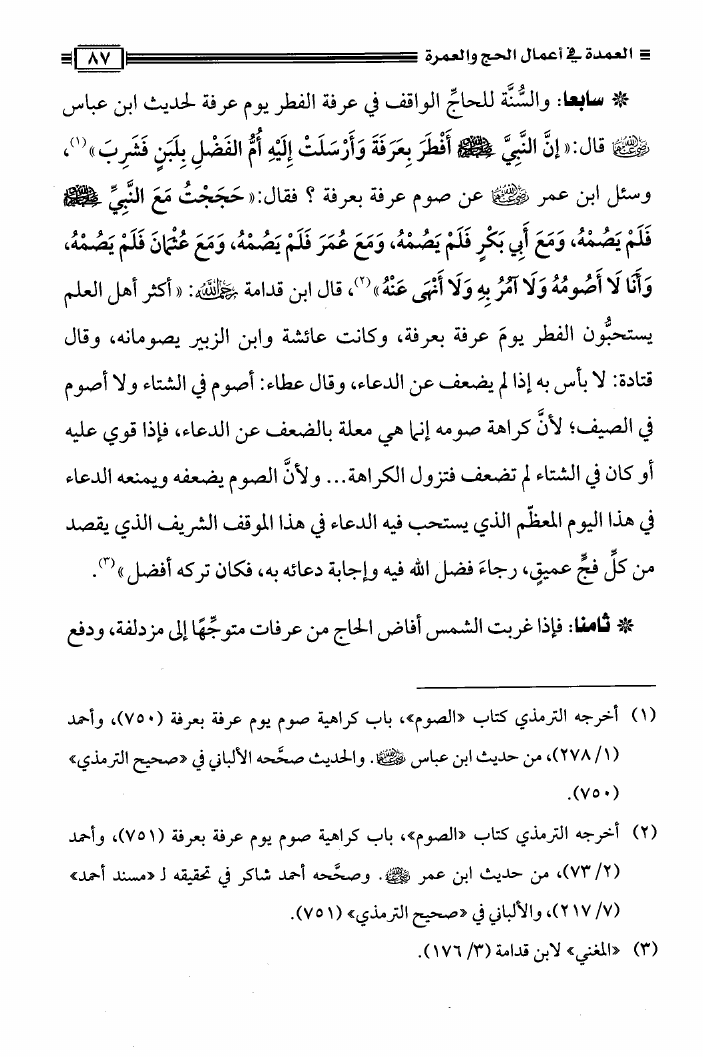 العمدة في أعمال الحج والعمرة ٨٧
* سابعا: والسُّنَّة للحاجِّ الواقف في عرفة الفطر يوم عرفة لحديث ابن عباس
رضي الله عنهما قال: «إِنَّ النَّبِيَّ ﷺ أَفْطَرَ بِعَرَفَةَ وَأَرْسَلَتْ إِلَيْهِ أُمُّ الفَضْلِ بِلَبَنٍ فَشَرِبَ»(١)،
وسئل ابن عمر رضي الله عنهما عن صوم عرفة بعرفة ؟ فقال: «حَجَجْتُ مَعَ النَّبِيِّ ﷺ
فَلَمْ يَصُمْهُ، وَمَعَ أَبِي بَكْرٍ فَلَمْ يَصُمْهُ، وَمَعَ عُمَرَ فَلَمْ يَصُمْهُ، وَمَعَ عُثْمَانَ فَلَمْ يَصُمْهُ،
وَأَنَا لَا أَصُومُهُ وَلَا آمُرُ بِهِ وَلَا أَنْهَى عَنْهُ»(٢)، قال ابن قدامة رحمه الله: «أكثر أهل العلم
يستحبُّون الفطر يومَ عرفة بعرفة، وكانت عائشة وابن الزبير يصومانه، وقال
قتادة: لا بأس به إذا لم يضعف عن الدعاء، وقال عطاء: أصوم في الشتاء ولا أصوم
في الصيف؛ لأنَّ كراهة صومه إنما هي معلة بالضعف عن الدعاء، فإذا قوي عليه
أو كان في الشتاء لم تضعف فتزول الكراهة... ولأنَّ الصوم يضعفه ويمنعه الدعاء
في هذا اليوم المعظّم الذي يستحب فيه الدعاء في هذا الموقف الشريف الذي يقصد
من كلِّ فجٍّ عميقٍ، رجاءَ فضل الله فيه وإجابة دعائه به، فكان تركه أفضل»(٣).
* ثامنا: فإذا غربت الشمس أفاض الحاج من عرفات متوجِّهًا إلى مزدلفة، ودفع
(١) أخرجه الترمذي كتاب «الصوم»، باب كراهية صوم يوم عرفة بعرفة (٧٥٠)، وأحمد
(١/ ٢٧٨)، من حديث ابن عباس رضي الله عنهما. والحديث صحَّحه الألباني في «صحيح الترمذي»
(٧٥٠).
(٢) أخرجه الترمذي كتاب «الصوم»، باب كراهية صوم يوم عرفة بعرفة (٧٥١)، وأحمد
(٢/ ٧٣)، من حديث ابن عمر رضي الله عنهما. وصحَّحه أحمد شاكر في تحقيقه لـ «مسند أحمد»
(٧/ ٢١٧)، والألباني في «صحيح الترمذي» (٧٥١).
(٣) «المغني» لابن قدامة (٣/ ١٧٦).